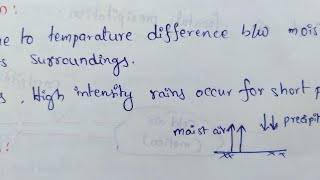 n:
ue to temparature difference b/w mois
s surroundings.
s , High intensity rains occur for short p
moist air
precipit